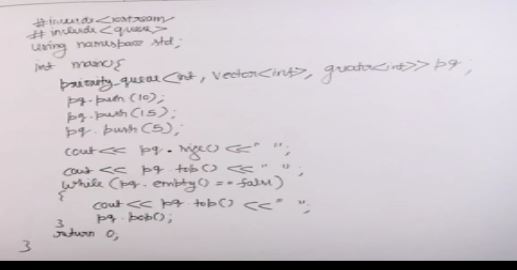 #include<iostream>
#include<queue>
using namespace std;
int main(){
priority_queue<int, vector<int>, greater<int>> pq;
pq.push(10);
pq.push(15);
pq.push(5);
cout<< pq.size() <<" ";
cout << pq.top() <<" ";
while (pq.empty() == false)
{
cout << pq.top() <<" ";
pq.pop();
}
return 0;
}